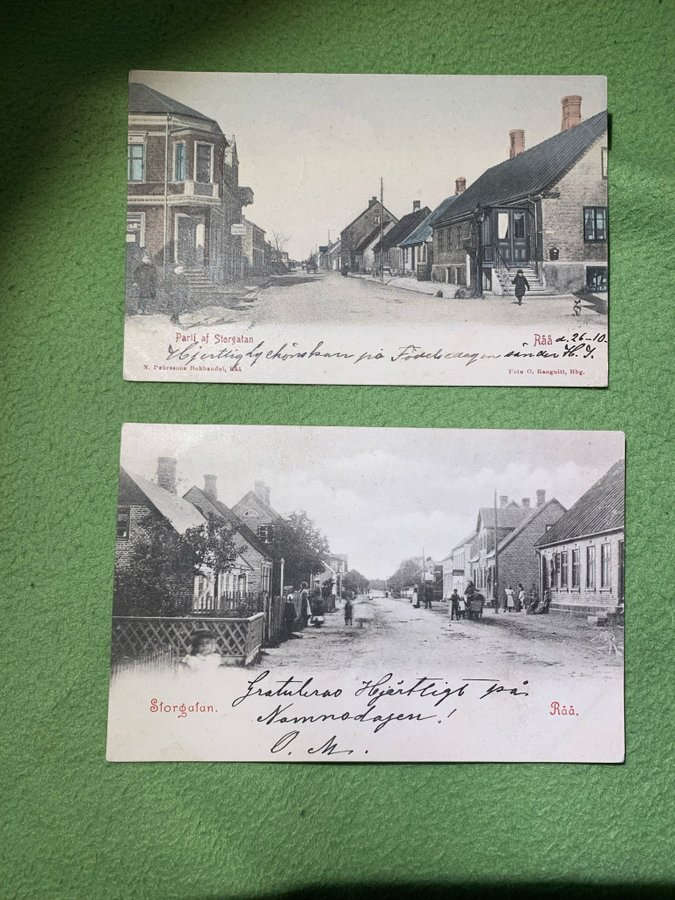 Parti af Storgatan
Råå d. 26-10.
Hjertlig lyckönskan på Födelsedagen sänder H. J.
N. Pehrssons Bokhandel, Råå
Foto O. Rangnitt, Hbg.
Gratuleras Hjärtligt på
Namnsdagen!
O. M.
Storgatan.
Råå.